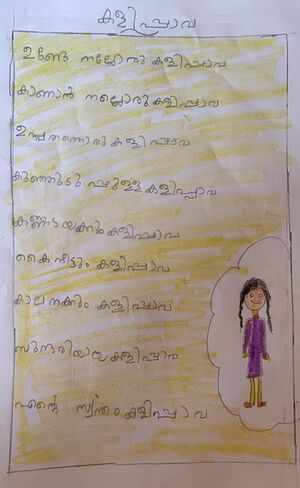 കളിപ്പാവ
ഉണ്ടേ നല്ലോരു കളിപ്പാവ
കാണാൻ നല്ലൊരു കളിപ്പാവ
കളിപ്പാവ
കുഞ്ഞുടുപ്പുള്ള കളിപ്പാവ
കണ്ണടയ്ക്കും കളിപ്പാവ
കൈ നീട്ടും കളിപ്പാവ
കാലനക്കും കളിപ്പാവ
സുന്ദരിയായ കളിപ്പാവ
എന്റെ സ്വന്തം കളിപ്പാവ